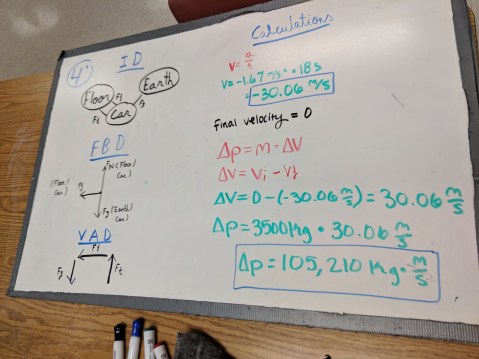 4.
ID
Floor
Ff
Earth
Fg
Ff
Car
FBD
FN (Floor/
Car)
(Floor/
Car)
Ff
Fg (Earth/
Car)
VAD
Ff
Fg
Ft
Calculations
v = a/t
v = -1.67 m/s² · 18s
= -30.06 m/s
final velocity = 0
Δp = m · ΔV
ΔV = Vi - Vf
ΔV = 0 - (-30.06 m/s) = 30.06 m/s
Δp = 3500kg · 30.06 m/s
Δp = 105,210 kg · m/s